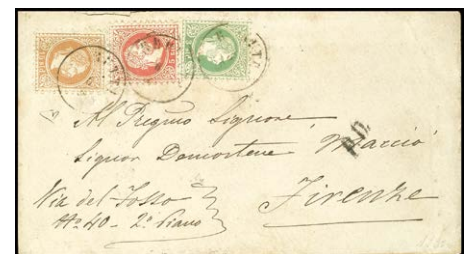 Al Pregmo Signore
Signor Demostene Macciò
P.D.
Via del Fosso
No 40 - 2o Piano
Firenze